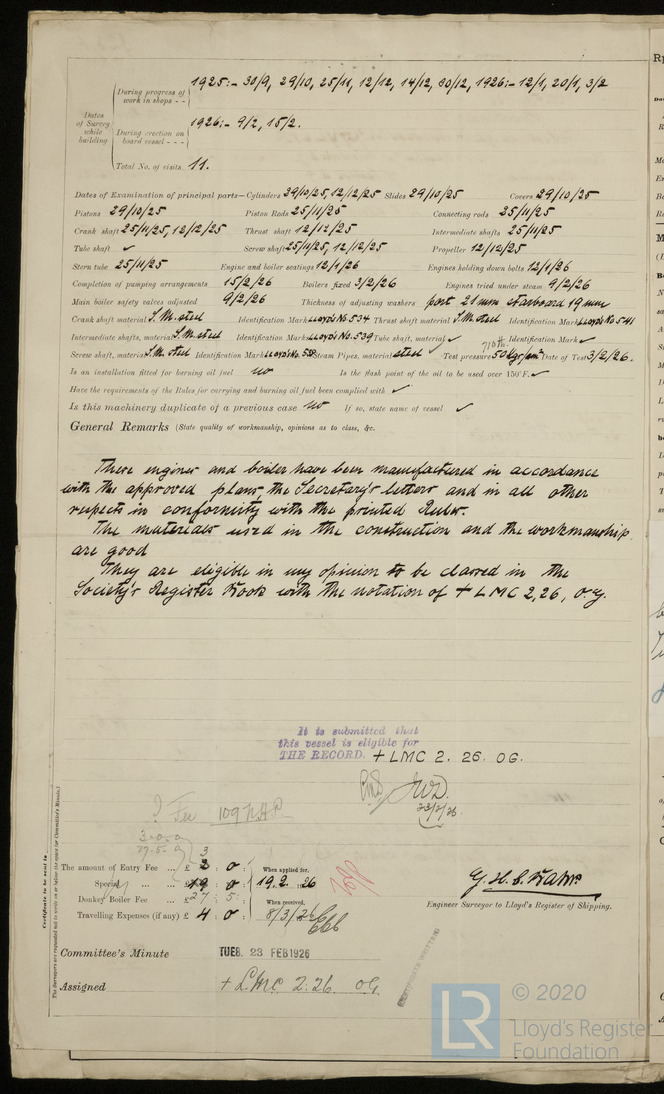 During progress of work in shops - - 1925:- 30/9, 29/10, 25/11, 12/12, 14/12, 30/12, 1926:- 12/1, 20/1, 3/2
Dates of Survey while building
During erection on board vessel - - - 1926:- 9/2, 15/2.
Total No. of visits 11.
Dates of Examination of principal parts—Cylinders 29/10/25, 12/12/25 Slides 29/10/25 Covers 29/10/25
Pistons 29/10/25 Piston Rods 25/11/25 Connecting rods 25/11/25
Crank shaft 25/11/25, 12/12/25 Thrust shaft 12/12/25 Intermediate shafts 25/11/25
Tube shaft ✓ Screw shaft 25/11/25, 12/12/25 Propeller 12/12/25
Stern tube 25/11/25 Engine and boiler seatings 12/1/26 Engines holding down bolts 12/1/26
Completion of pumping arrangements 15/2/26 Boilers fixed 3/2/26 Engines tried under steam 9/2/26
Main boiler safety valves adjusted 9/2/26 Thickness of adjusting washers port 21 mm starboard 19 mm
Crank shaft material S.M. steel Identification Mark LLOYD'S No 534 Thrust shaft material S.M. steel Identification Mark LLOYD'S No 541
Intermediate shafts, material S.M. steel Identification Mark LLOYD'S No. 539 Tube shaft, material ✓ Identification Mark ✓
Screw shaft, material S.M. steel Identification Mark LLOYD'S No. Steam Pipes, material steel ✓ Test pressure 50 kgs/cm² Date of Test 3/2/26.
Is an installation fitted for burning oil fuel no Is the flash point of the oil to be used over 150°F. ✓
Have the requirements of the Rules for carrying and burning oil fuel been complied with ✓
Is this machinery duplicate of a previous case no If so, state name of vessel ✓
General Remarks (State quality of workmanship, opinions as to class, &c.
These engines and boiler have been manufactured in accordance
with the approved plans, the Secretary's letters and in all other
respects in conformity with the printed Rules.
The materials used in the construction and the workmanship
are good
They are eligible in my opinion to be classed in the
Society's Register Book with the notation of + LMC 2,26, O.G.
It is submitted that
this vessel is eligible for
THE RECORD. + LMC 2. 26. OG.
JWD.
23/2/26
Fee 109 N.H.P.
3-0-0
27-5-0
3
The amount of Entry Fee ... £ 2 : 0 :
Special ... ... £ 19 : 0 :
Donkey Boiler Fee ... £ 27 : 5 :
Travelling Expenses (if any) £ 4 : 0 :
When applied for, 19.2.26
When received, 8/3/26
Engineer Surveyor to Lloyd's Register of Shipping.
Committee's Minute TUES. 23 FEB 1926
Assigned + LMC 2.26 OG
CERTIFICATE WRITTEN
Certificate to be sent to
The Surveyors are requested not to write on or below the space for Committee's Minute.
LR
© 2020
Lloyd's Register
Foundation